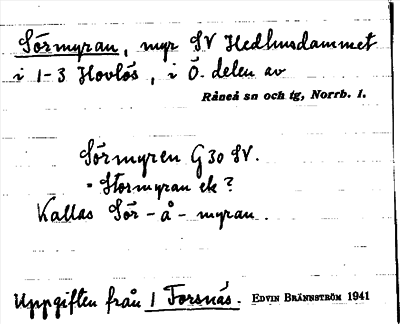 Sörmyran, myr SV Hedhusdammet
i 1-3 Hovlös, i Ö. delen av
Råneå sn och tg, Norrb. l.
Sörmyren G 30 SV.
" Stormyran ek ?
Kallas Sör-å-myran.
Uppgiften från 1 Forsnäs. EDVIN BRÄNNSTRÖM 1941